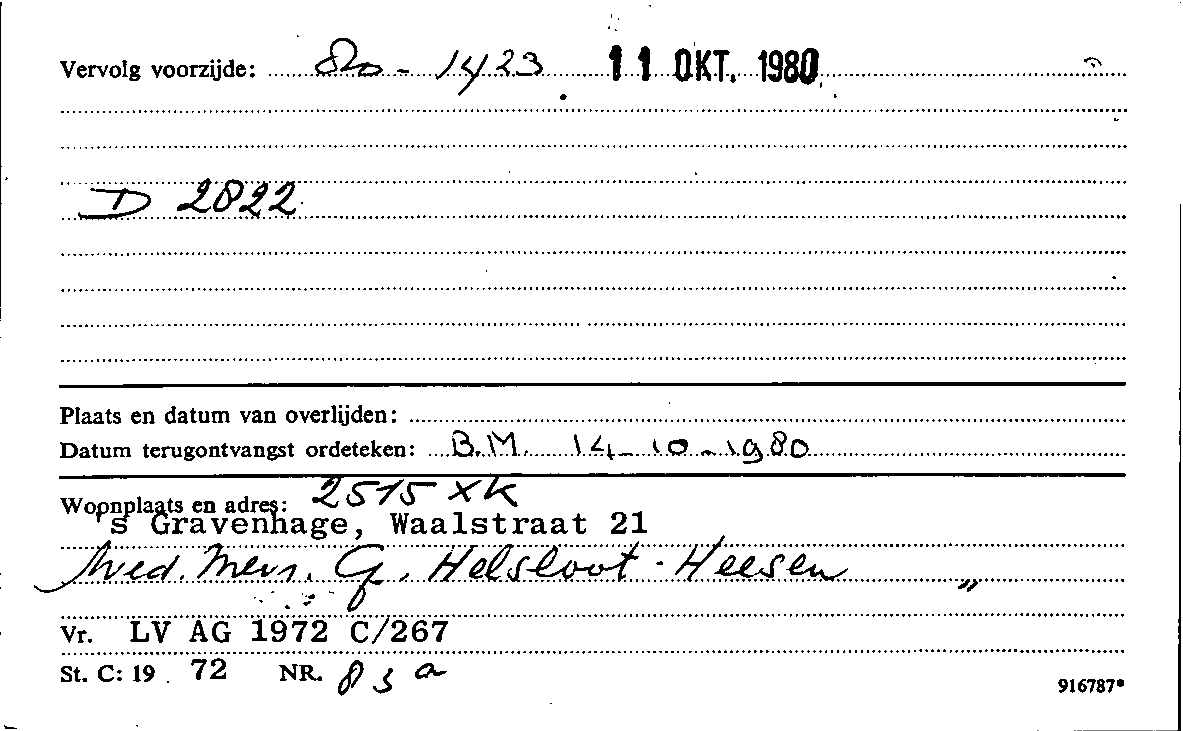 Vervolg voorzijde: 80 - 1423 11 OKT. 1980
D 2822
Plaats en datum van overlijden:
Datum terugontvangst ordeteken: B.M. 14-10-1980
Woonplaats en adres: 2515 XK
's Gravenhage, Waalstraat 21
Wed. Mevr. G. Helsloot - Heesen "
Vr. LV AG 1972 C/267
St. C: 19 72 NR. 83 a
916787*